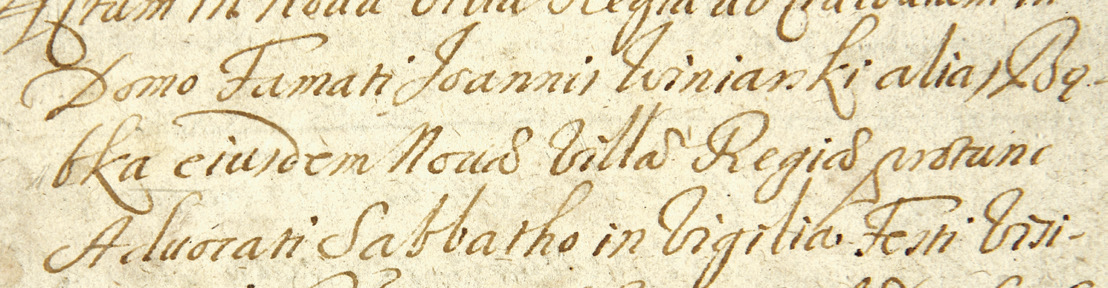 Actum in Nova Villa Regia ad
Domo Famati Joannis Winiarski alias Bą-
bka eiusdem Novæ Villæ Regiæ protunc
Advocati Sabbatho in Vigilia Festi Visi-